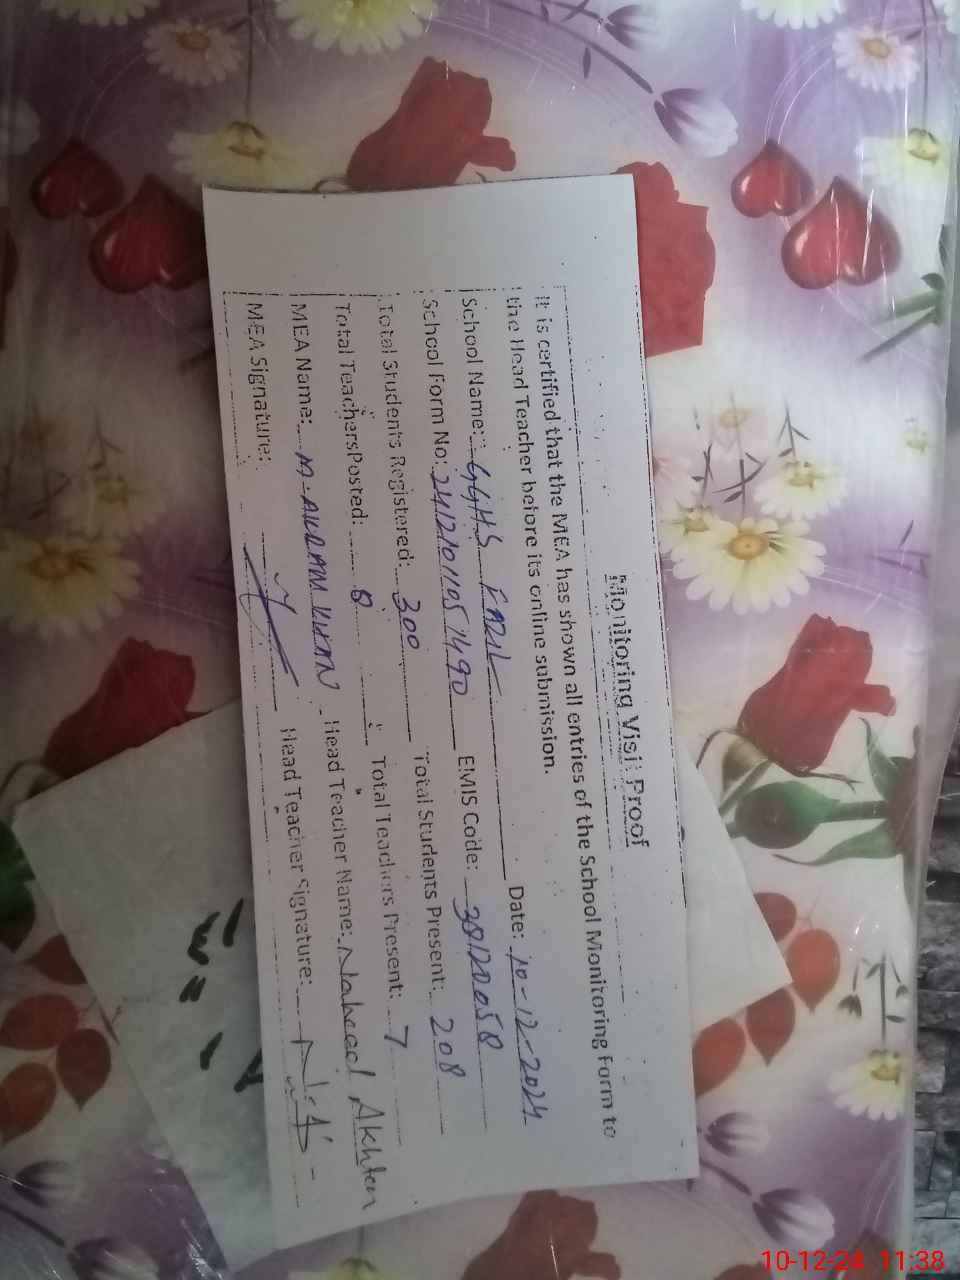 Monitoring Visit Proof
It is certified that the MEA has shown all entries of the School Monitoring Form to
the Head Teacher before its online submission.
School Name: GGHS FAZIL Date: 10-12-2024
School Form No: EMIS Code: 38120058
Total Students Registered: 300 Total Students Present: 208
Total Teachers Posted: 8 Total Teachers Present: 7
MEA Name: M-AKRAM KHAN Head Teacher Name: Naheed Akhter
MEA Signature: Head Teacher Signature:
10-12-24 11:38